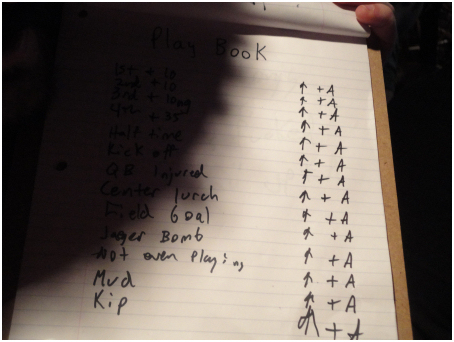 Play Book
1st + 10 ↑ + A
2nd + 10 ↑ + A
3rd + long ↑ + A
4th + 35 ↑ + A
Half time ↑ + A
Kick off ↑ + A
QB Injured ↑ + A
Center lurch ↑ + A
Field Goal ↑ + A
Jager Bomb ↑ + A
Not even playing ↑ + A
Mud ↑ + A
Kip ↑ + A